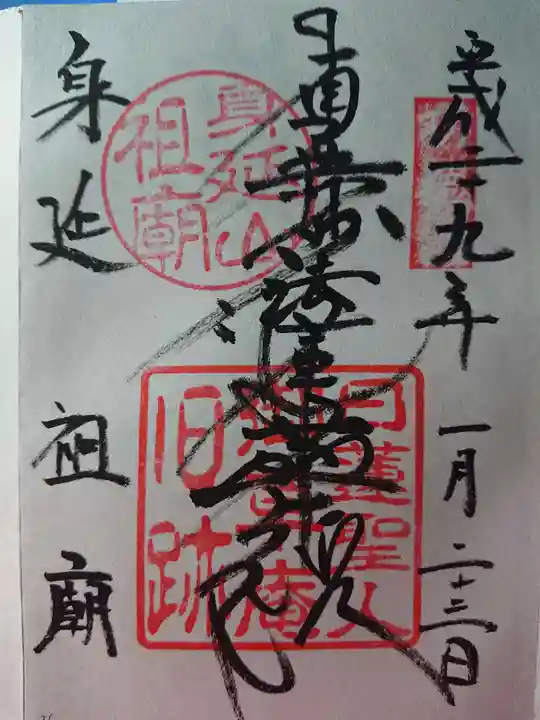 平成二十九年 一月二十三日
南無妙法蓮華経
身延 祖廟
身延山
祖廟
日蓮聖人
旧跡